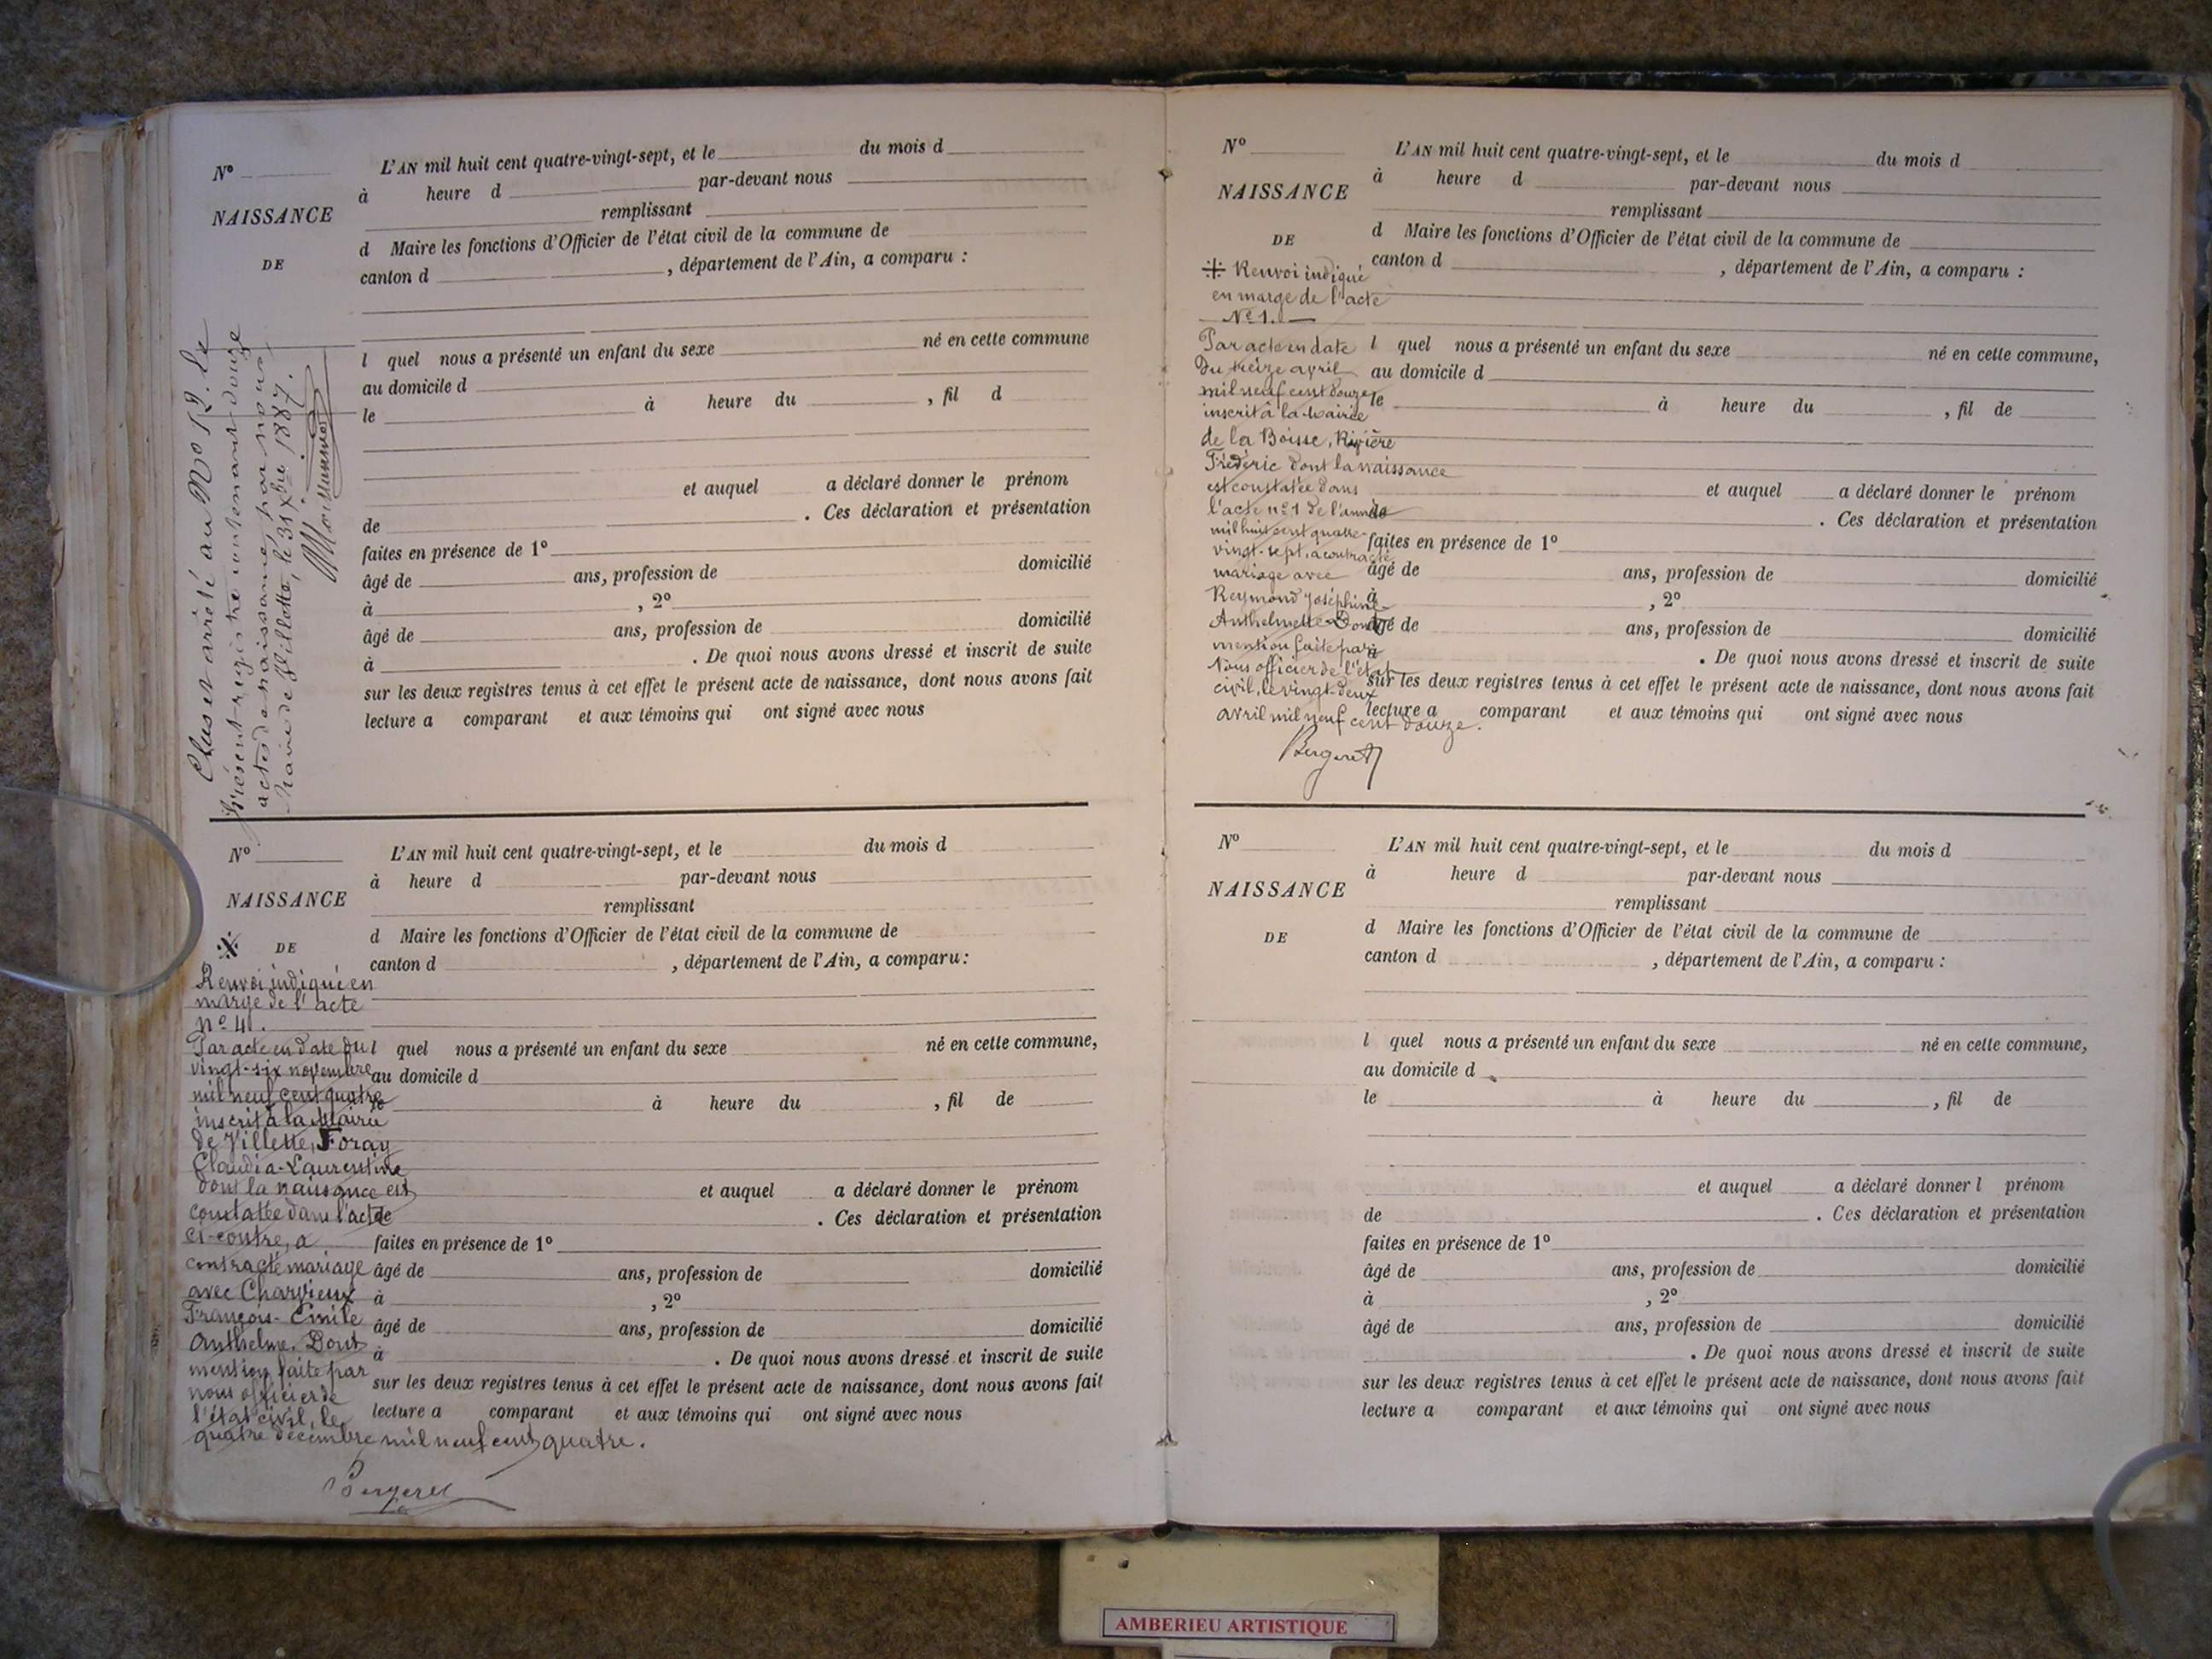 Clos et arrêté au No 12. Le
présent registre contenant douze
actes de naissance, par nous
Maire de Villette, le 31 Xbre 1887.
No
NAISSANCE
DE
L'AN mil huit cent quatre-vingt-sept, et le du mois d
à heure d par-devant nous
remplissant
d Maire les fonctions d'Officier de l'état civil de la commune de
canton d , département de l'Ain, a comparu :
l quel nous a présenté un enfant du sexe né en cette commune
au domicile d
le à heure du , fil d
et auquel a déclaré donner le prénom
de . Ces déclaration et présentation
faites en présence de 1º
âgé de ans, profession de domicilié
à , 2º
âgé de ans, profession de domicilié
à . De quoi nous avons dressé et inscrit de suite
sur les deux registres tenus à cet effet le présent acte de naissance, dont nous avons fait
lecture a comparant et aux témoins qui ont signé avec nous
No
NAISSANCE
DE
Renvoi indiqué en
marge de l'acte
nº 4.
Par acte en date du
vingt-six novembre
mil neuf cent quatre
inscrit à la Mairie
de Villette, Foray
Claudia-Laurentine
dont la naissance est
constatée dans l'acte
ci-contre, a
contracté mariage
avec Charvieux
François-Emile
Anthelme. Dont
mention faite par
nous officier de
l'état civil, le
quatre décembre mil neuf cent quatre.
Bergeret
L'AN mil huit cent quatre-vingt-sept, et le du mois d
à heure d par-devant nous
remplissant
d Maire les fonctions d'Officier de l'état civil de la commune de
canton d , département de l'Ain, a comparu :
l quel nous a présenté un enfant du sexe né en cette commune,
au domicile d
le à heure du , fil de
et auquel a déclaré donner le prénom
de . Ces déclaration et présentation
faites en présence de 1º
âgé de ans, profession de domicilié
à , 2º
âgé de ans, profession de domicilié
à . De quoi nous avons dressé et inscrit de suite
sur les deux registres tenus à cet effet le présent acte de naissance, dont nous avons fait
lecture a comparant et aux témoins qui ont signé avec nous
No
NAISSANCE
DE
Renvoi indiqué
en marge de l'acte
Nº 1.
Par acte en date
du treize avril
mil neuf cent douze
inscrit à la Mairie
de la Boisse, Rivière
Frédéric dont la naissance
est constatée dans
l'acte nº 1 de l'année
mil huit cent quatre-
vingt-sept, a contracté
mariage avec
Reymond Joséphine-
Anthelmette. Dont
mention faite par
Nous officier de l'état
civil, le vingt-deux
avril mil neuf cent douze.
Bergeret
L'AN mil huit cent quatre-vingt-sept, et le du mois d
à heure d par-devant nous
remplissant
d Maire les fonctions d'Officier de l'état civil de la commune de
canton d , département de l'Ain, a comparu :
l quel nous a présenté un enfant du sexe né en cette commune,
au domicile d
le à heure du , fil de
et auquel a déclaré donner le prénom
de . Ces déclaration et présentation
faites en présence de 1º
âgé de ans, profession de domicilié
à , 2º
âgé de ans, profession de domicilié
à . De quoi nous avons dressé et inscrit de suite
sur les deux registres tenus à cet effet le présent acte de naissance, dont nous avons fait
lecture a comparant et aux témoins qui ont signé avec nous
No
NAISSANCE
DE
L'AN mil huit cent quatre-vingt-sept, et le du mois d
à heure d par-devant nous
remplissant
d Maire les fonctions d'Officier de l'état civil de la commune de
canton d , département de l'Ain, a comparu :
l quel nous a présenté un enfant du sexe né en cette commune,
au domicile d
le à heure du , fil de
et auquel a déclaré donner l prénom
de . Ces déclaration et présentation
faites en présence de 1º
âgé de ans, profession de domicilié
à , 2º
âgé de ans, profession de domicilié
. De quoi nous avons dressé et inscrit de suite
sur les deux registres tenus à cet effet le présent acte de naissance, dont nous avons fait
lecture a comparant et aux témoins qui ont signé avec nous
AMBERIEU ARTISTIQUE